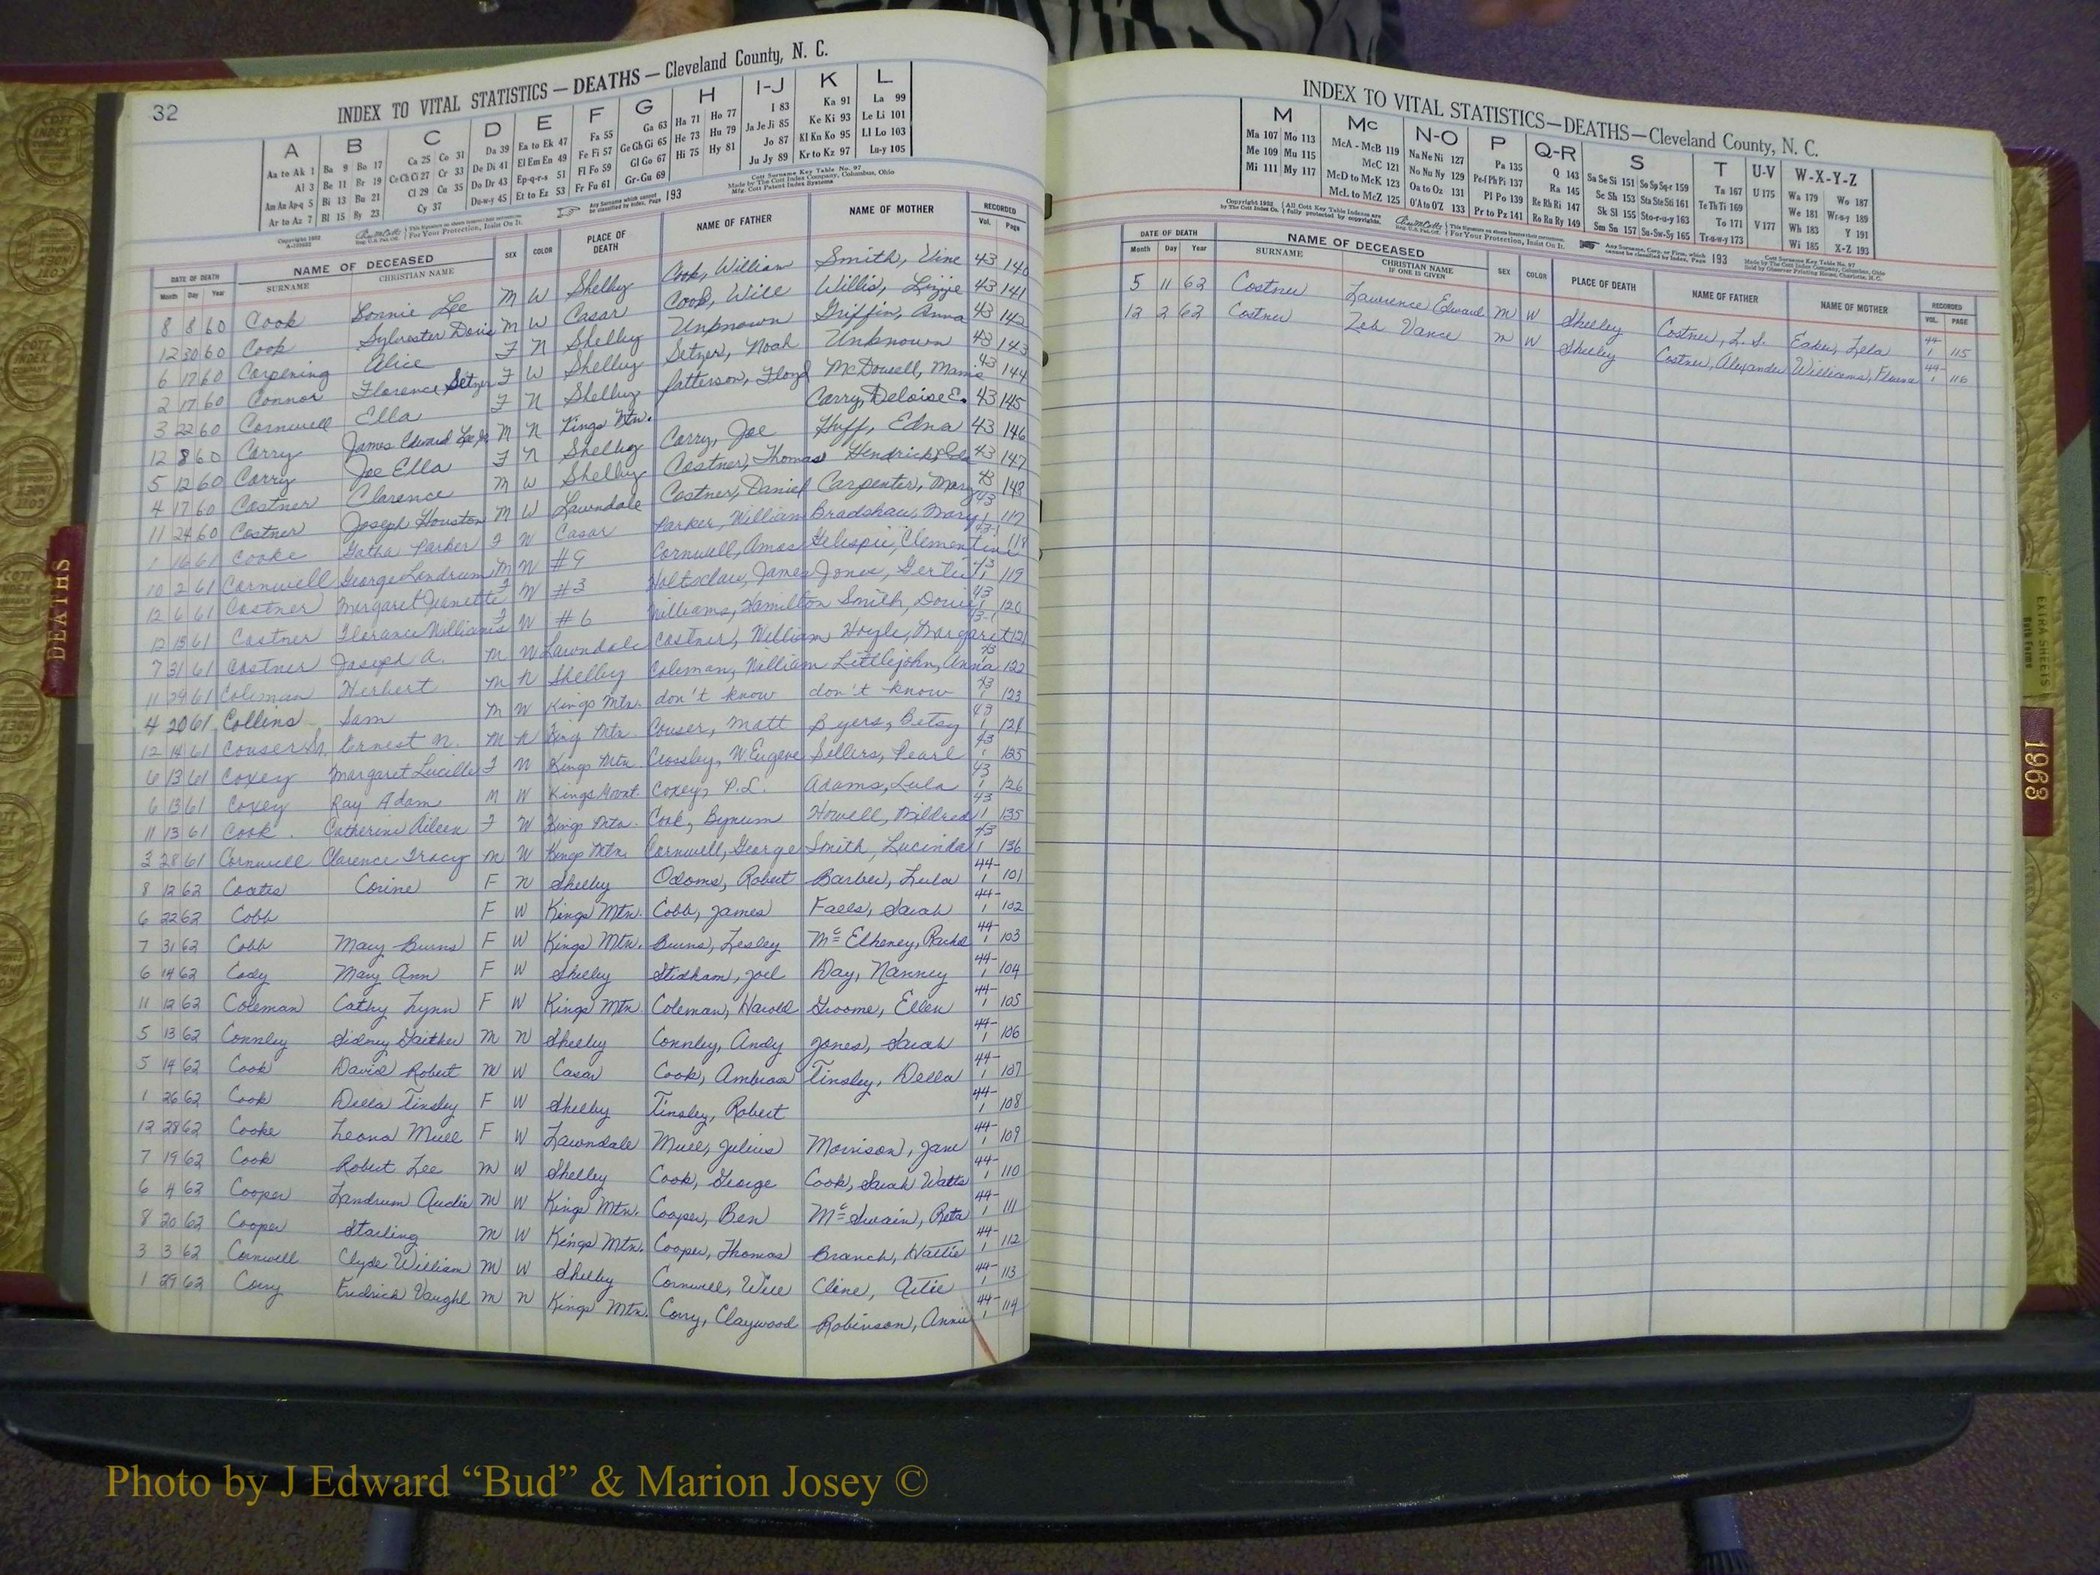 32
INDEX TO VITAL STATISTICS — DEATHS — Cleveland County, N. C.
A B C D E F G H I-J K L
Aa to Ak 1 Ba 9 Bo 17 Ca 25 Co 31 Da 39 Ea to Ek 47 Fa 55 Ga 63 Ha 71 Ho 77 I 83 Ka 91 La 99
Al 3 Be 11 Br 19 Ce Ch Ci 27 Cr 33 De Di 41 El Em En 49 Fe Fi 57 Ge Gh Gi 65 He 73 Hu 79 Ja Je Ji 85 Ke Ki 93 Le Li 101
Am An Ap-q 5 Bi 13 Bu 21 Cl 29 Cu 35 Do Dr 43 Ep-q-r-s 51 Fl Fo 59 Gl Go 67 Hi 75 Hy 81 Jo 87 Kl Kn Ko 95 Ll Lo 103
Ar to Az 7 Bl 15 By 23 Cy 37 Du-w-y 45 Et to Ez 53 Fr Fu 61 Gr-Gu 69 Ju Jy 89 Kr to Kz 97 Lu-y 105
Any Surname which cannot be classified by Index, Page 193
Cott Surname Key Table No. 97
Made by The Cott Index Company, Columbus, Ohio
Mfg. Cott Patent Index Systems
DATE OF DEATH NAME OF DECEASED SEX COLOR PLACE OF DEATH NAME OF FATHER NAME OF MOTHER RECORDED
Month Day Year SURNAME CHRISTIAN NAME Vol. Page
8 8 60 Cook Lonnie Lee M W Shelby Cook, William Smith, Vine 43 140
12 30 60 Cook Sylvester Doris M W Casar Cook, Will Willis, Lizzie 43 141
6 17 60 Corpening Alice F N Shelby Unknown Griffin, Anna 43 142
2 17 60 Connor Florence Setzer F W Shelby Setzer, Noah Unknown 43 143
3 22 60 Cornwell Ella F N Shelby Patterson, Floyd McDowell, Mamie 43 144
12 8 60 Corry James Edward Lee Jr M N Kings Mtn. Corry, Deloise E. 43 145
5 12 60 Corry Joe Ella F N Shelby Corry, Joe Huff, Edna 43 146
4 17 60 Costner Clarence M W Shelby Costner, Thomas 43 147
11 24 60 Costner Joseph Houston M W Lawndale Costner, Daniel Carpenter, Mary 43 148
1 16 61 Cooke Gatha Parker F W Casar Parker, William Bradshaw, Mary 43 1 117
10 2 61 Cornwell George Landrum M W #9 Cornwell, Amos Gelispie, Clementine 43-1 118
12 6 61 Costner Margaret Jeanette F W #3 Holtsclaw, James Jones, Gertie 43 1 119
12 15 61 Costner Florance Williams F W #6 Williams, Hamilton Smith, Dovie 43 1 120
7 31 61 Costner Joseph A. M W Lawndale Costner, William Hoyle, Margaret 43-1 121
11 29 61 Coleman Herbert M N Shelby Coleman, William Littlejohn, Anna 43 1 122
4 20 61 Collins Sam M W Kings Mtn. don't know don't know 43 1 123
12 14 61 Couser Sr. Ernest N. M N King Mtn Couser, Matt Byers, Betsy 43 1 124
6 13 61 Coxey Margaret Lucille F W Kings Mtn Crossley, W Eugene Sellers, Pearl 43 1 125
6 13 61 Coxey Ray Adam M W Kings Mount. Coxey, P.L. Adams, Lula 43 1 126
11 13 61 Cook Catherine Aileen F W Kings Mtn. Cook, Bynum Howell, Mildred 43 1 135
3 28 61 Cornwell Clarence Tracy M W Kings Mtn. Cornwell, George Smith, Lucinda 43 1 136
8 12 62 Coates Corine F N Shelby Odoms, Robert Barber, Lula 44-1 101
6 22 62 Cobb F W Kings Mtn. Cobb, James Falls, Sarah 44-1 102
7 31 62 Cobb Mary Burns F W Kings Mtn. Burns, Lesley McElheney, Rachel 44-1 103
6 14 62 Cody Mary Ann F W Shelby Stidham, Joel Day, Nanney 44-1 104
11 12 62 Coleman Cathy Lynn F W Kings Mtn Coleman, Harold Groome, Ellen 44-1 105
5 13 62 Connley Sidney Gaither M N Shelby Connley, Andy Jones, Sarah 44-1 106
5 14 62 Cook David Robert M W Casar Cook, Ambrose Tinsley, Della 44-1 107
1 26 62 Cook Della Tinsley F W Shelby Tinsley, Robert 44-1 108
12 28 62 Cooke Leona Mull F W Lawndale Mull, Julius Morrison, Jane 44-1 109
7 19 62 Cook Robert Lee M W Shelby Cook, George Cook, Sarah Watts 44-1 110
6 4 62 Cooper Landrum Audie M W Kings Mtn. Cooper, Ben McSwain, Reta 44-1 111
8 20 62 Cooper Starling M W Kings Mtn. Cooper, Thomas Branch, Hattie 44-1 112
3 3 62 Cornwell Clyde William M W Shelby Cornwell, Will Cline, Artie 44-1 113
1 29 62 Corry Fredrick Vaughl M N Kings Mtn. Corry, Claywood Robinson, Annie 44-1 114
INDEX TO VITAL STATISTICS—DEATHS—Cleveland County, N. C.
M Mc N-O P Q-R S T U-V W-X-Y-Z
Ma 107 Mo 113 McA - McB 119 Na Ne Ni 127 Pa 135 Q 143 Sa Se Si 151 So Sp Sq-r 159 Ta 167 U 175 Wa 179 Wo 187
Me 109 Mu 115 McC 121 No Nu Ny 129 Pe-f Ph Pi 137 Ra 145 Sc Sh 153 Sta Ste Sti 161 Te Th Ti 169 We 181 Wr-u-y 189
Mi 111 My 117 McD to McK 123 Oa to Oz 131 Pl Po 139 Re Rh Ri 147 Sk Sl 155 Sto-r-u-y 163 To 171 V 177 Wh 183 Y 191
McL to McZ 125 O'A to O'Z 133 Pr to Pz 141 Ro Ru Ry 149 Sm Sn 157 Su-Sw-Sy 165 Tr-u-w-y 173 Wi 185 X-Z 193
Any Surname, Corp. or Firm, which cannot be classified by Index, Page 193
Cott Surname Key Table No. 97
Made by The Cott Index Company, Columbus, Ohio
Sold by Observer Printing House, Charlotte, N. C.
DATE OF DEATH NAME OF DECEASED SEX COLOR PLACE OF DEATH NAME OF FATHER NAME OF MOTHER RECORDED
Month Day Year SURNAME CHRISTIAN NAME IF ONE IS GIVEN VOL. PAGE
5 11 62 Costner Lawrence Edward M W Shelby Costner, L. S. Eaker, Lela 44-1 115
12 2 62 Costner Zeb Vance M W Shelby Costner, Alexander Williams, 44-1 116
DEATHS
EXTRA SHEETS
1963
Photo by J Edward “Bud” & Marion Josey ©